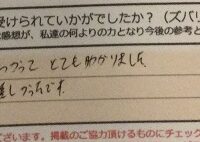 受けられていかがでしたか？（ズバリ
感想が、私達の何よりの力となり今後の参考と
とても助かりました。
かったです。
ございます。掲載のご協力頂けるものにチェック